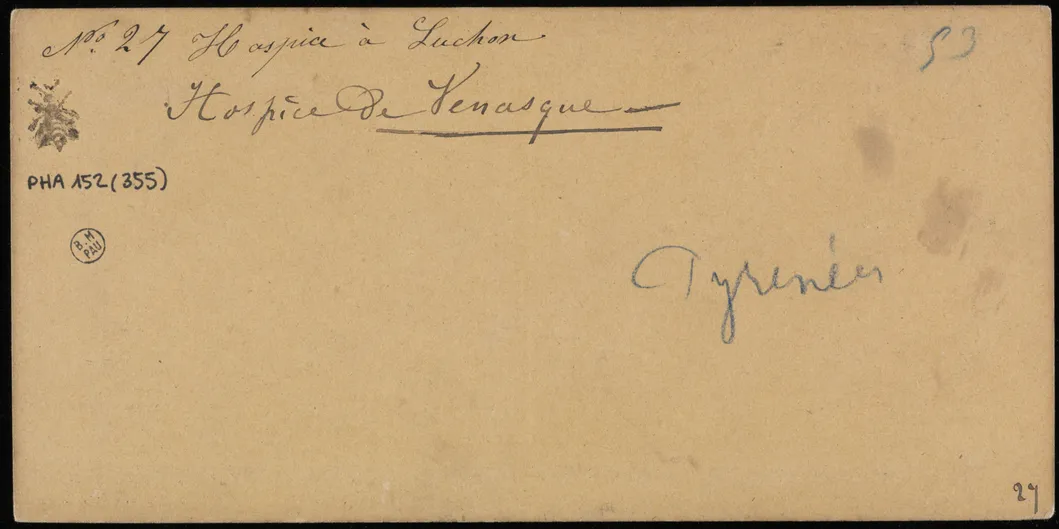 No. 27 Hospice à Luchon
53
Hospice De Venasque
PHA 152 (355)
B. M
PAU
Pyrenées
27